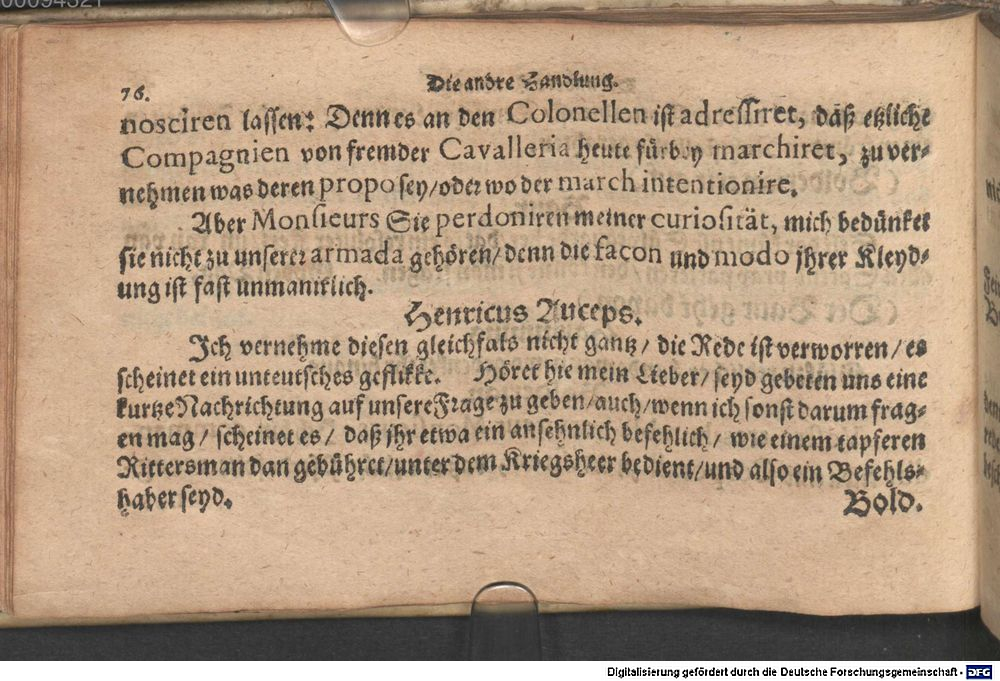 00094521
76.
Die andre Handlung.
nosciren lassen: Denn es an den Colonellen ist adressiret, daß etzliche
Compagnien von fremder Cavalleria heute fürbey marchiret, zu ver-
nehmen was deren propo sey/oder wo der march intentionire.
Aber Monsieurs Sie perdoniren meiner curiosität, mich bedünket
sie nicht zu unserer armada gehören/denn die facon und modo jhrer Kleyd-
ung ist fast unmanirlich.
Henricus Auceps.
Ich vernehme diesen gleichfals nicht gantz/ die Rede ist verworren/es
scheinet ein unteutsches geflikke. Höret hie mein Lieber/seyd gebeten uns eine
kurtze Nachrichtung auf unsere Frage zu geben/auch/wenn ich sonst darum frag-
en mag/ scheinet es/ daß jhr etwa ein ansehnlich befehlich/ wie einem tapferen
Rittersman dan gebühret/unter dem Kriegsheer bedient/und also ein Befehls-
haber seyd.
Bold.
Digitalisierung gefördert durch die Deutsche Forschungsgemeinschaft - DFG